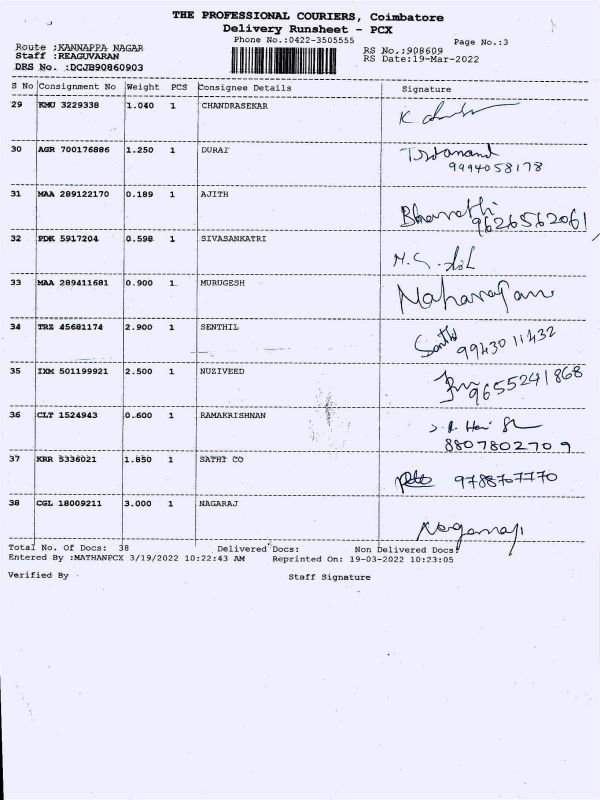 THE PROFESSIONAL COURIERS, Coimbatore
Delivery Runsheet - PCX
Phone No.:0422-3505555
Page No.:3
Route :KANNAPPA NAGAR
RS No.:908609
Staff :REAGUVARAN
RS Date:19-Mar-2022
DRS No. :DCJB90860903
S No Consignment No Weight PCS Consignee Details Signature
29 KMU 3229338 1.040 1 CHANDRASEKAR
30 AGR 700176886 1.250 1 DURAI
9994058178
31 MAA 289122170 0.189 1 AJITH Bharathi
9626562061
32 PDK 5917204 0.598 1 SIVASANKATRI
33 MAA 289411681 0.900 1 MURUGESH
34 TRZ 45681174 2.900 1 SENTHIL
9943011432
35 IXM 501199921 2.500 1 NUZIVEED
9655241868
36 CLT 1524943 0.600 1 RAMAKRISHNAN
8807802709
37 KRR 5336021 1.850 1 SATHI CO 9788707770
38 CGL 18009211 3.000 1 NAGARAJ
Total No. Of Docs: 38 Delivered Docs: Non Delivered Docs:
Entered By :MATHANPCX 3/19/2022 10:22:43 AM Reprinted On: 19-03-2022 10:23:05
Verified By Staff Signature